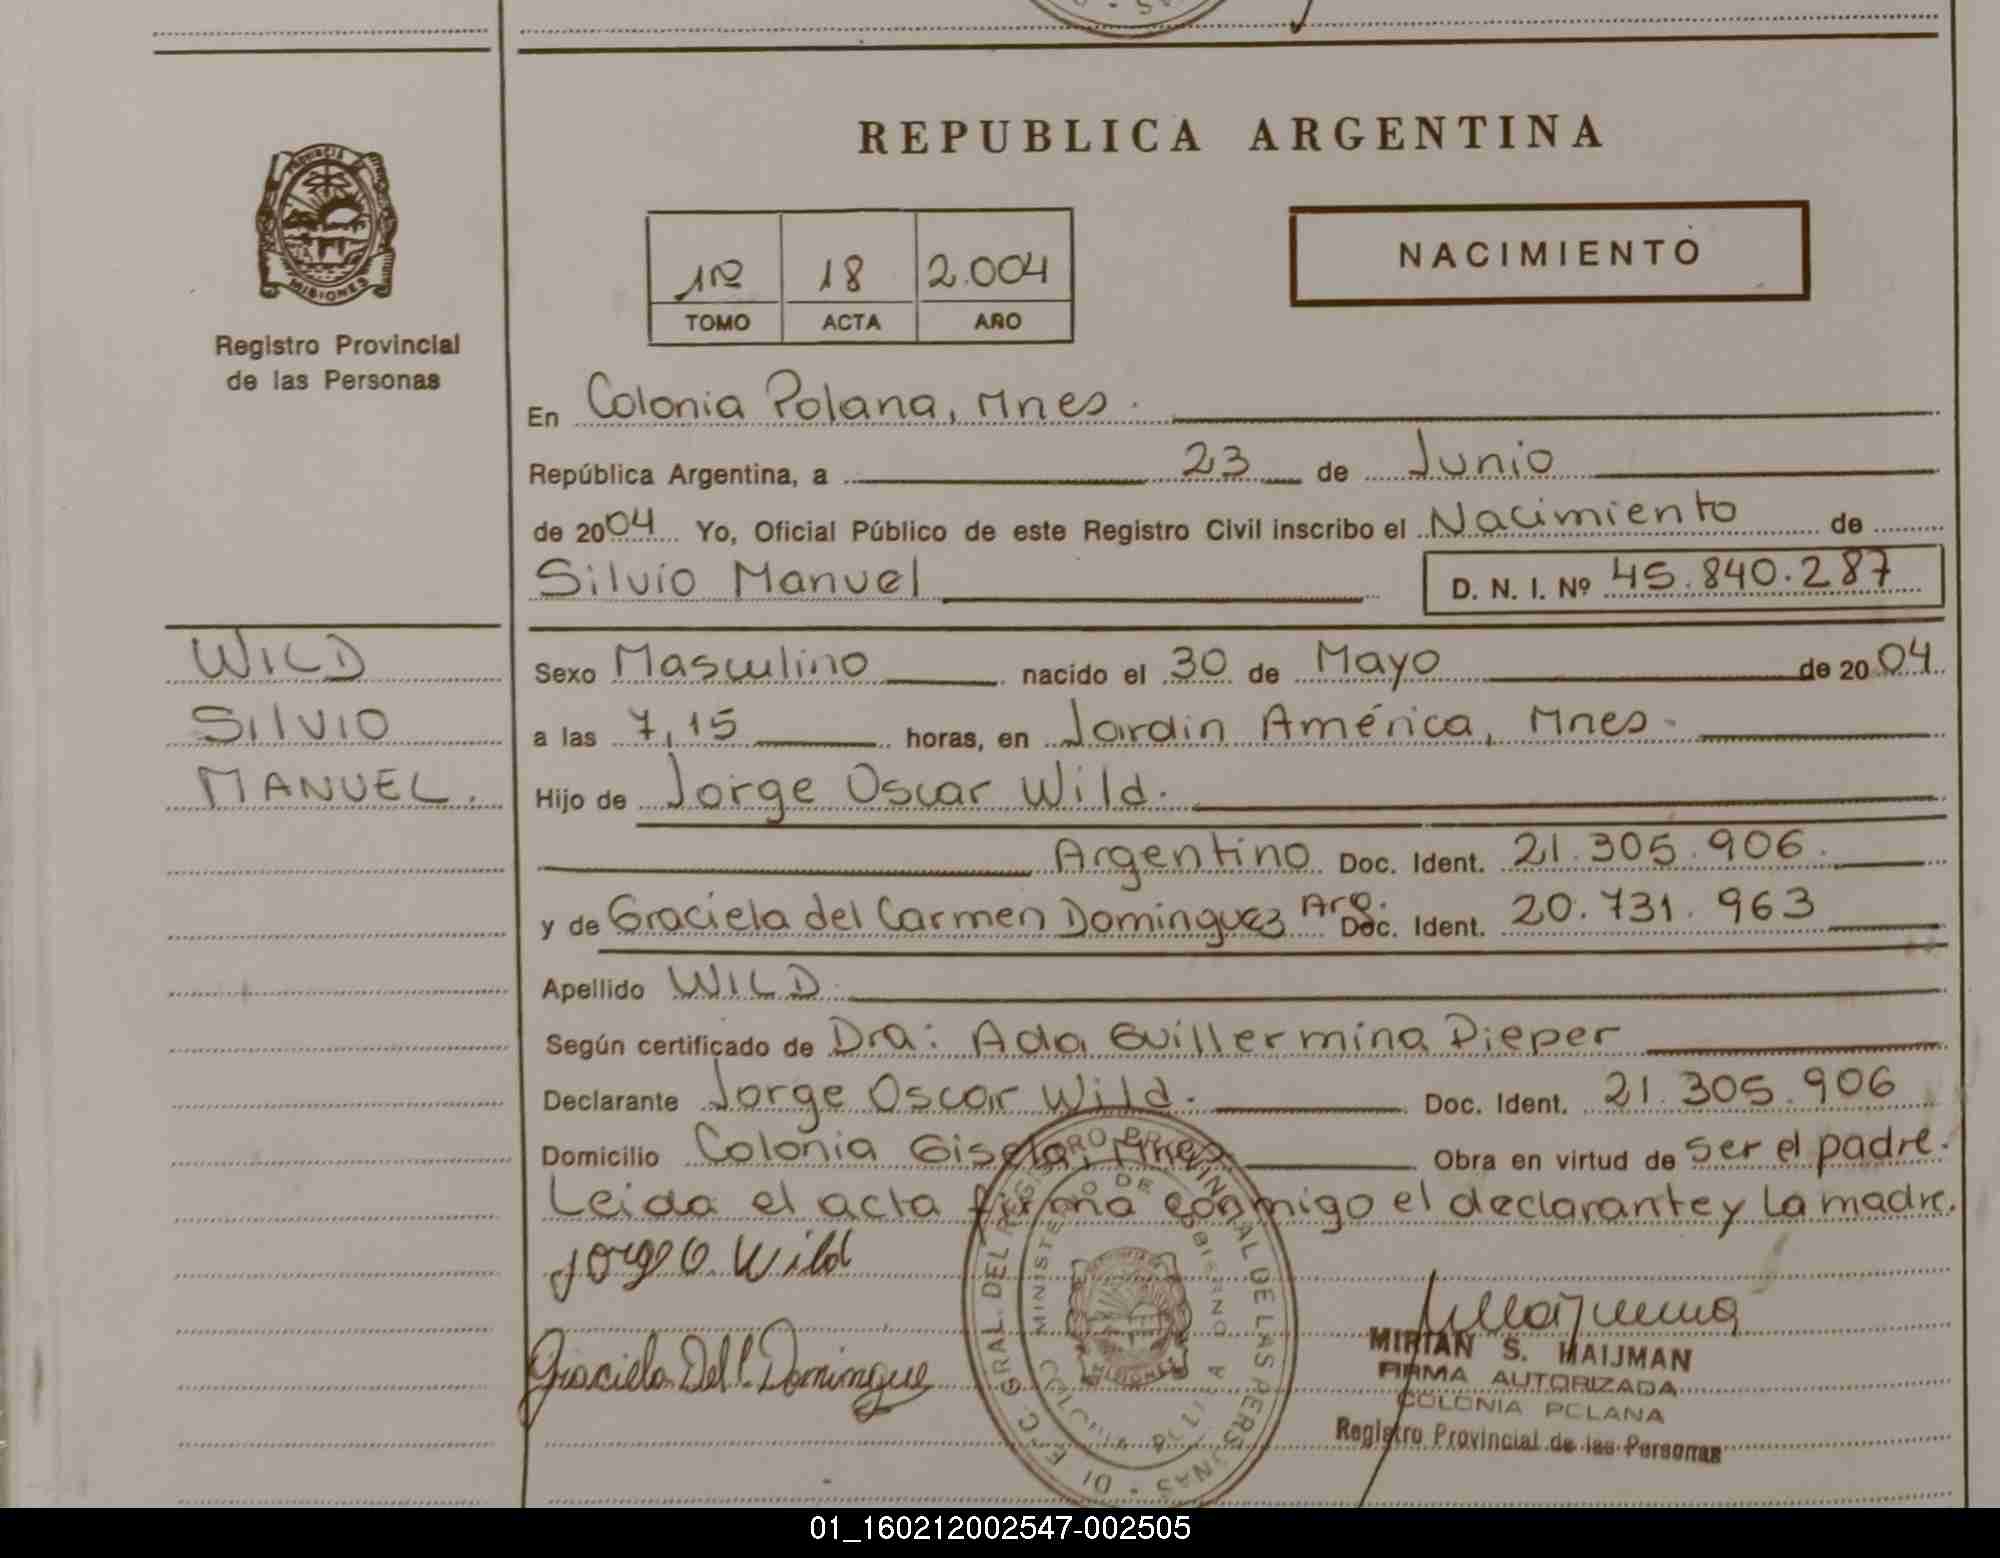 REPUBLICA ARGENTINA
PROVINCIA
MISIONES
Registro Provincial
de las Personas
1º 18 2.004
TOMO ACTA AÑO
NACIMIENTO
En Colonia Polana, Mnes.
República Argentina, a 23 de Junio
de 2004 Yo, Oficial Público de este Registro Civil inscribo el Nacimiento de
Silvio Manuel D. N. I. Nº 45.840.287
WILD
SILVIO
MANUEL.
Sexo Masculino nacido el 30 de Mayo de 2004
a las 7,15 horas, en Jardin América, Mnes.
Hijo de Jorge Oscar Wild.
Argentino Doc. Ident. 21.305.906.
y de Graciela del Carmen Dominguez Arg. Doc. Ident. 20.731.963
Apellido WILD
Según certificado de Dra: Ada Guillermina Dieper
Declarante Jorge Oscar Wild. Doc. Ident. 21.305.906
Domicilio Colonia Gisela, Mnes Obra en virtud de ser el padre.
Leida el acta firma conmigo el declarante y la madre.
Jorge O. Wild
Graciela Del C. Domingue
GRAL. DEL REGISTRO PROVINCIAL DE LAS PERSONAS
MINISTERIO DE GOBIERNO
MISIONES
MIRIAN S. HAIJMAN
FIRMA AUTORIZADA
COLONIA POLANA
Registro Provincial de las Personas
01_160212002547-002505